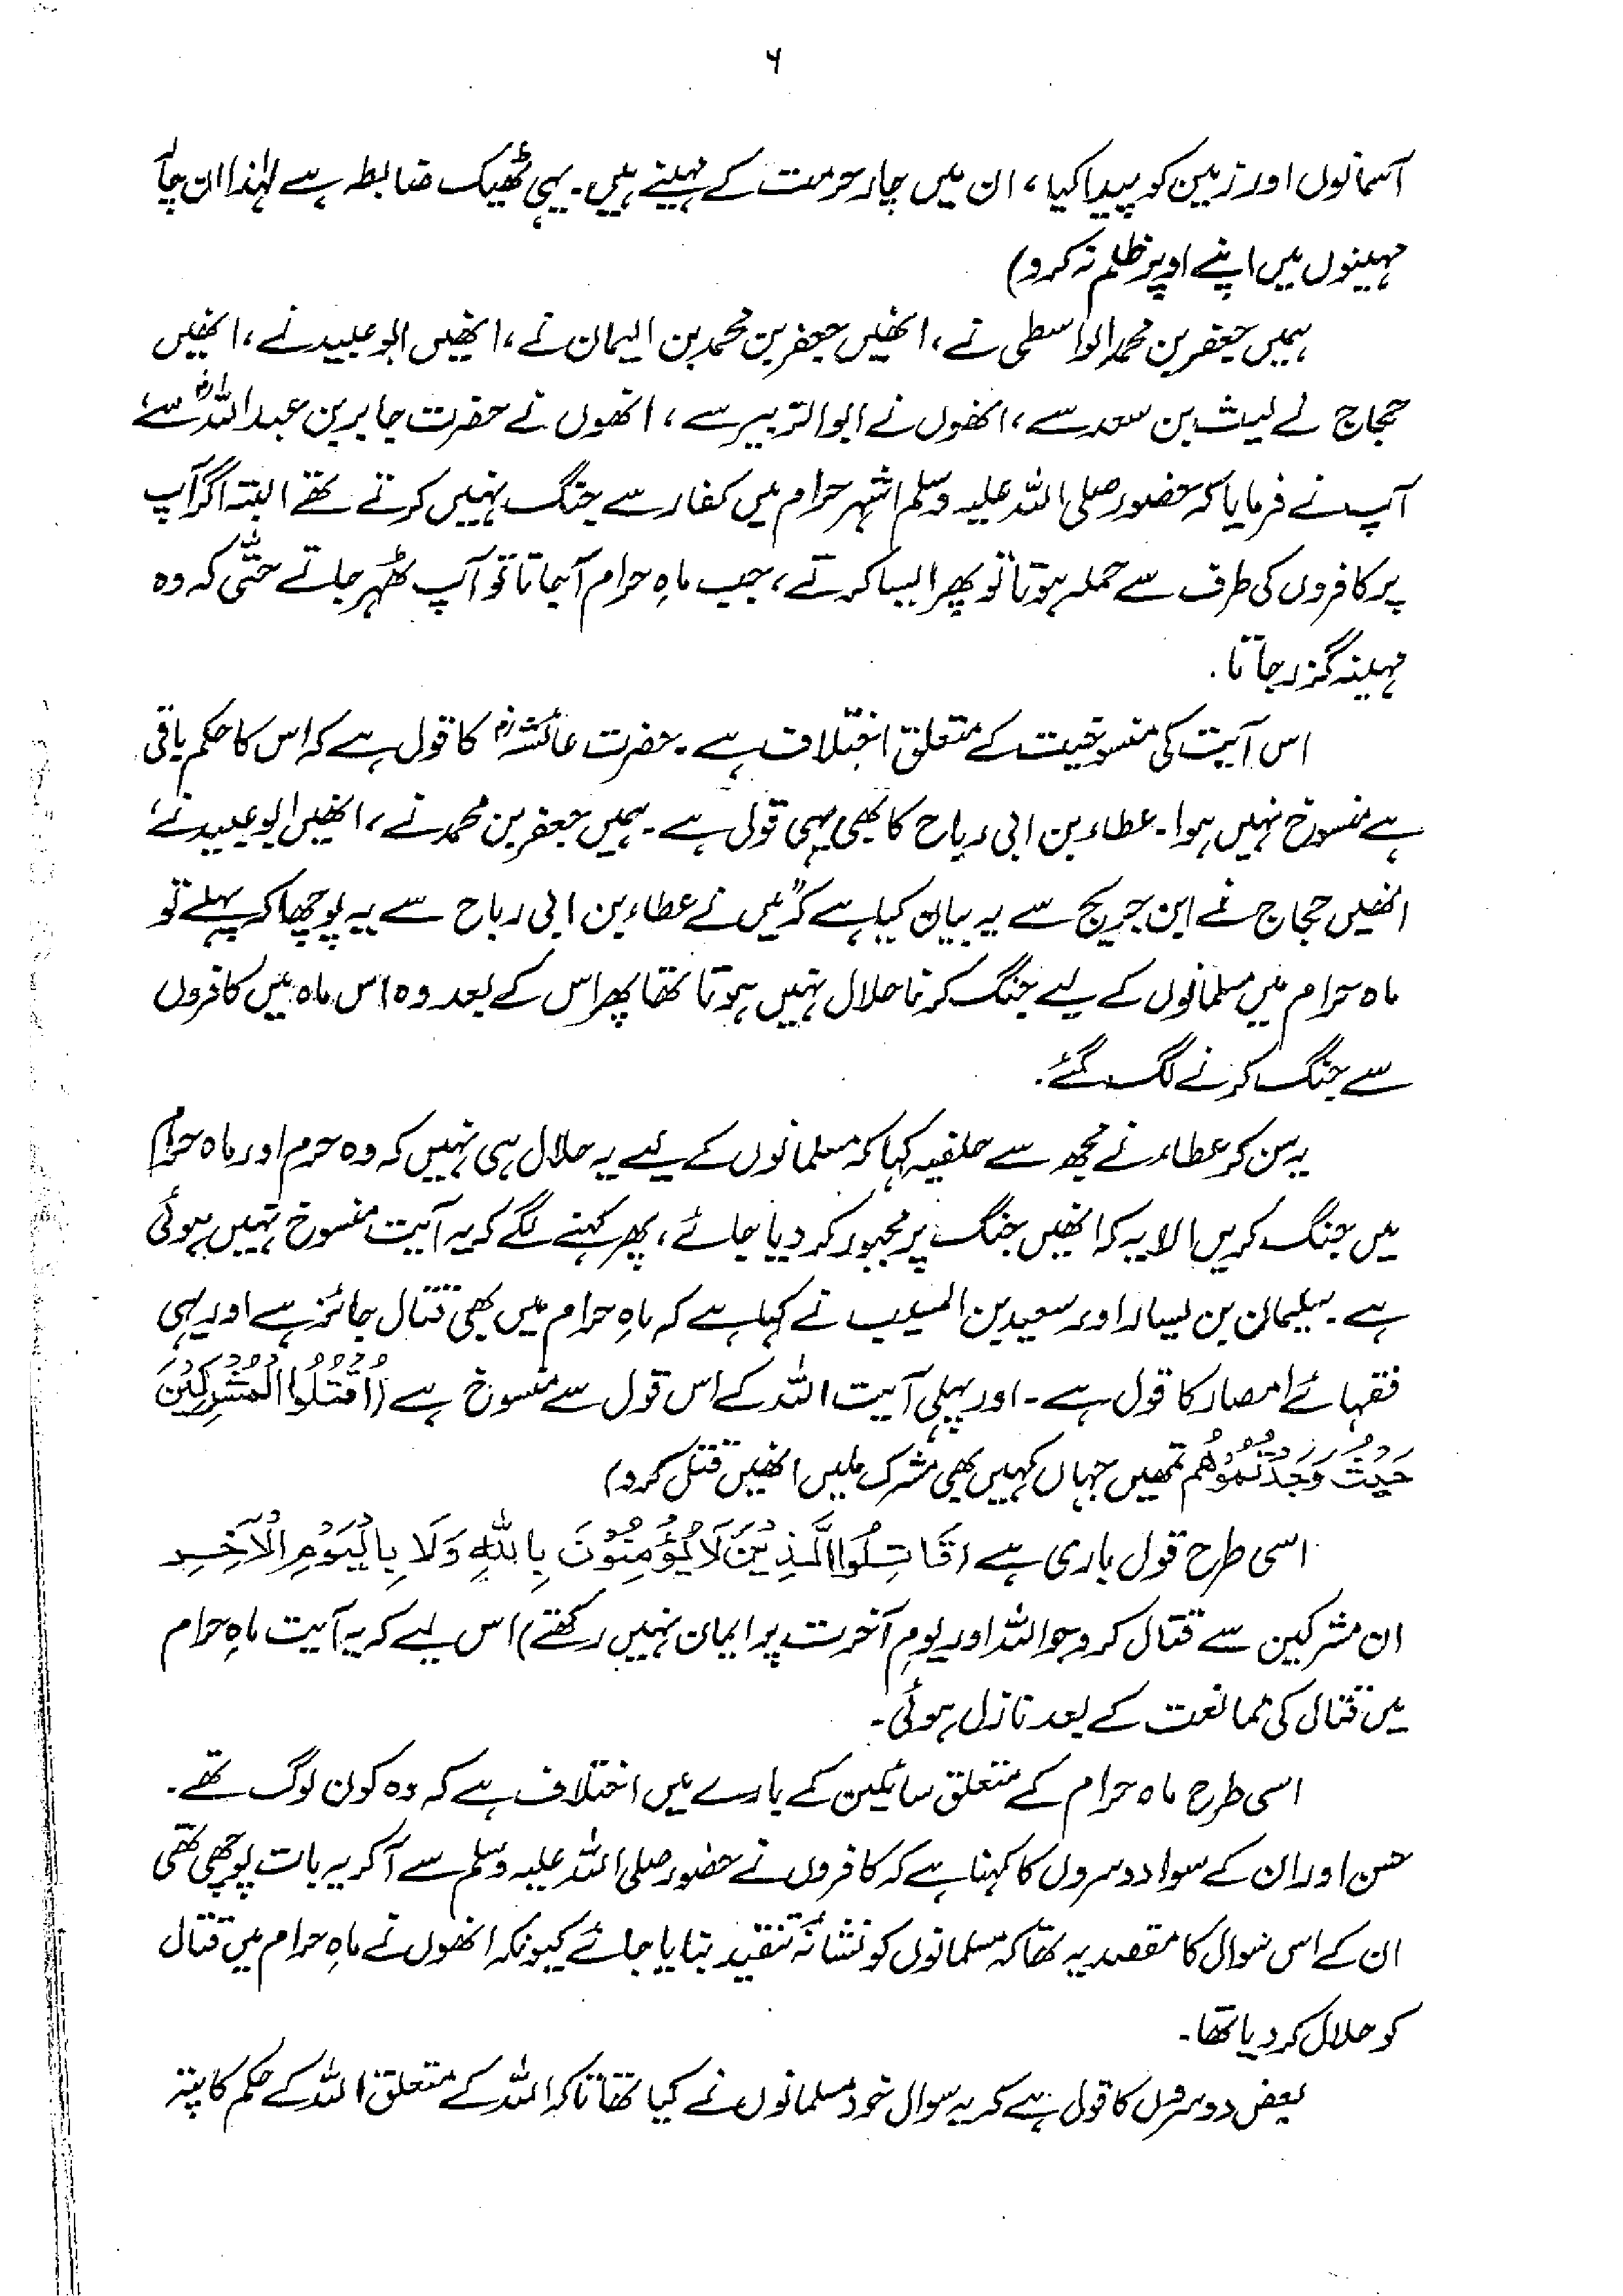 ۶
آسمانوں اور زمین کو پیدا کیا، ان میں چار حرمت کے مہینے ہیں۔ یہی ٹھیک ضابطہ ہے لہٰذا ان چار
مہینوں میں اپنے اوپر ظلم نہ کرو)
ہمیں جعفر بن محمد الواسطی نے، انھیں جعفر بن محمد بن الیمان نے، انھیں ابو عبید نے، انھیں
حجاج نے لیث بن سعد سے، انھوں نے ابو الزبیر سے، انھوں نے حضرت جابر بن عبد اللہؓ سے،
آپ نے فرمایا کہ حضور صلی اللہ علیہ وسلم اشہر حرام میں کفار سے جنگ نہیں کرتے تھے البتہ اگر آپ
پر کافروں کی طرف سے حملہ ہوتا تو پھر ایسا کرتے، جب ماہِ حرام آجاتا تو آپ ٹھہر جاتے حتّٰی کہ وہ
مہینہ گزر جاتا۔
اس آیت کی منسوخیت کے متعلق اختلاف ہے۔ حضرت عائشہؓ کا قول ہے کہ اس کا حکم باقی
ہے منسوخ نہیں ہوا۔ عطاء بن ابی رباح کا بھی یہی قول ہے۔ ہمیں جعفر بن محمد نے، انھیں ابو عبید نے،
انھیں حجاج نے ابن جریج سے یہ بیان کیا ہے کہ "میں نے عطاء بن ابی رباح سے یہ پوچھا کہ پہلے تو
ماہ حرام میں مسلمانوں کے لیے جنگ کرنا حلال نہیں ہوتا تھا پھر اس کے بعد وہ اس ماہ میں کافروں
سے جنگ کرنے لگ گئے۔
یہ سن کر عطاء نے مجھ سے حلفیہ کہا کہ مسلمانوں کے لیے یہ حلال ہی نہیں کہ وہ حرم اور ماہ حرام
میں جنگ کریں الا یہ کہ انھیں جنگ پر مجبور کر دیا جائے، پھر کہنے لگے کہ یہ آیت منسوخ نہیں ہوئی
ہے۔ سلیمان بن یسار اور سعید بن المسیب نے کہا ہے کہ ماہِ حرام میں بھی قتال جائز ہے اور یہی
فقہائے امصار کا قول ہے۔ اور پہلی آیت اللہ کے اس قول سے منسوخ ہے (اُقْتُلُوا الْمُشْرِكِيْنَ
حَيْثُ وَجَدْتُّمُوْهُمْ تمھیں جہاں کہیں بھی مشرک ملیں انھیں قتل کرو)
اسی طرح قول باری ہے (قَاتِلُوا الَّذِيْنَ لَا يُؤْمِنُوْنَ بِاللّٰهِ وَلَا بِالْيَوْمِ الْاٰخِرِ
ان مشرکین سے قتال کرو جو اللہ اور یومِ آخرت پر ایمان نہیں رکھتے) اس لیے کہ یہ آیت ماہِ حرام
میں قتال کی ممانعت کے بعد نازل ہوئی۔
اسی طرح ماہ حرام کے متعلق سائلین کے بارے میں اختلاف ہے کہ وہ کون لوگ تھے۔
حسن اور ان کے سوا دوسروں کا کہنا ہے کہ کافروں نے حضور صلی اللہ علیہ وسلم سے آکر یہ بات پوچھی تھی
ان کے اس سوال کا مقصد یہ تھا کہ مسلمانوں کو نشانۂ تنقید بنایا جائے کیونکہ انھوں نے ماہِ حرام میں قتال
کو حلال کر دیا تھا۔
بعض دوسروں کا قول ہے کہ یہ سوال خود مسلمانوں نے کیا تھا تاکہ اللہ کے متعلق اللہ کے حکم کا پتہ